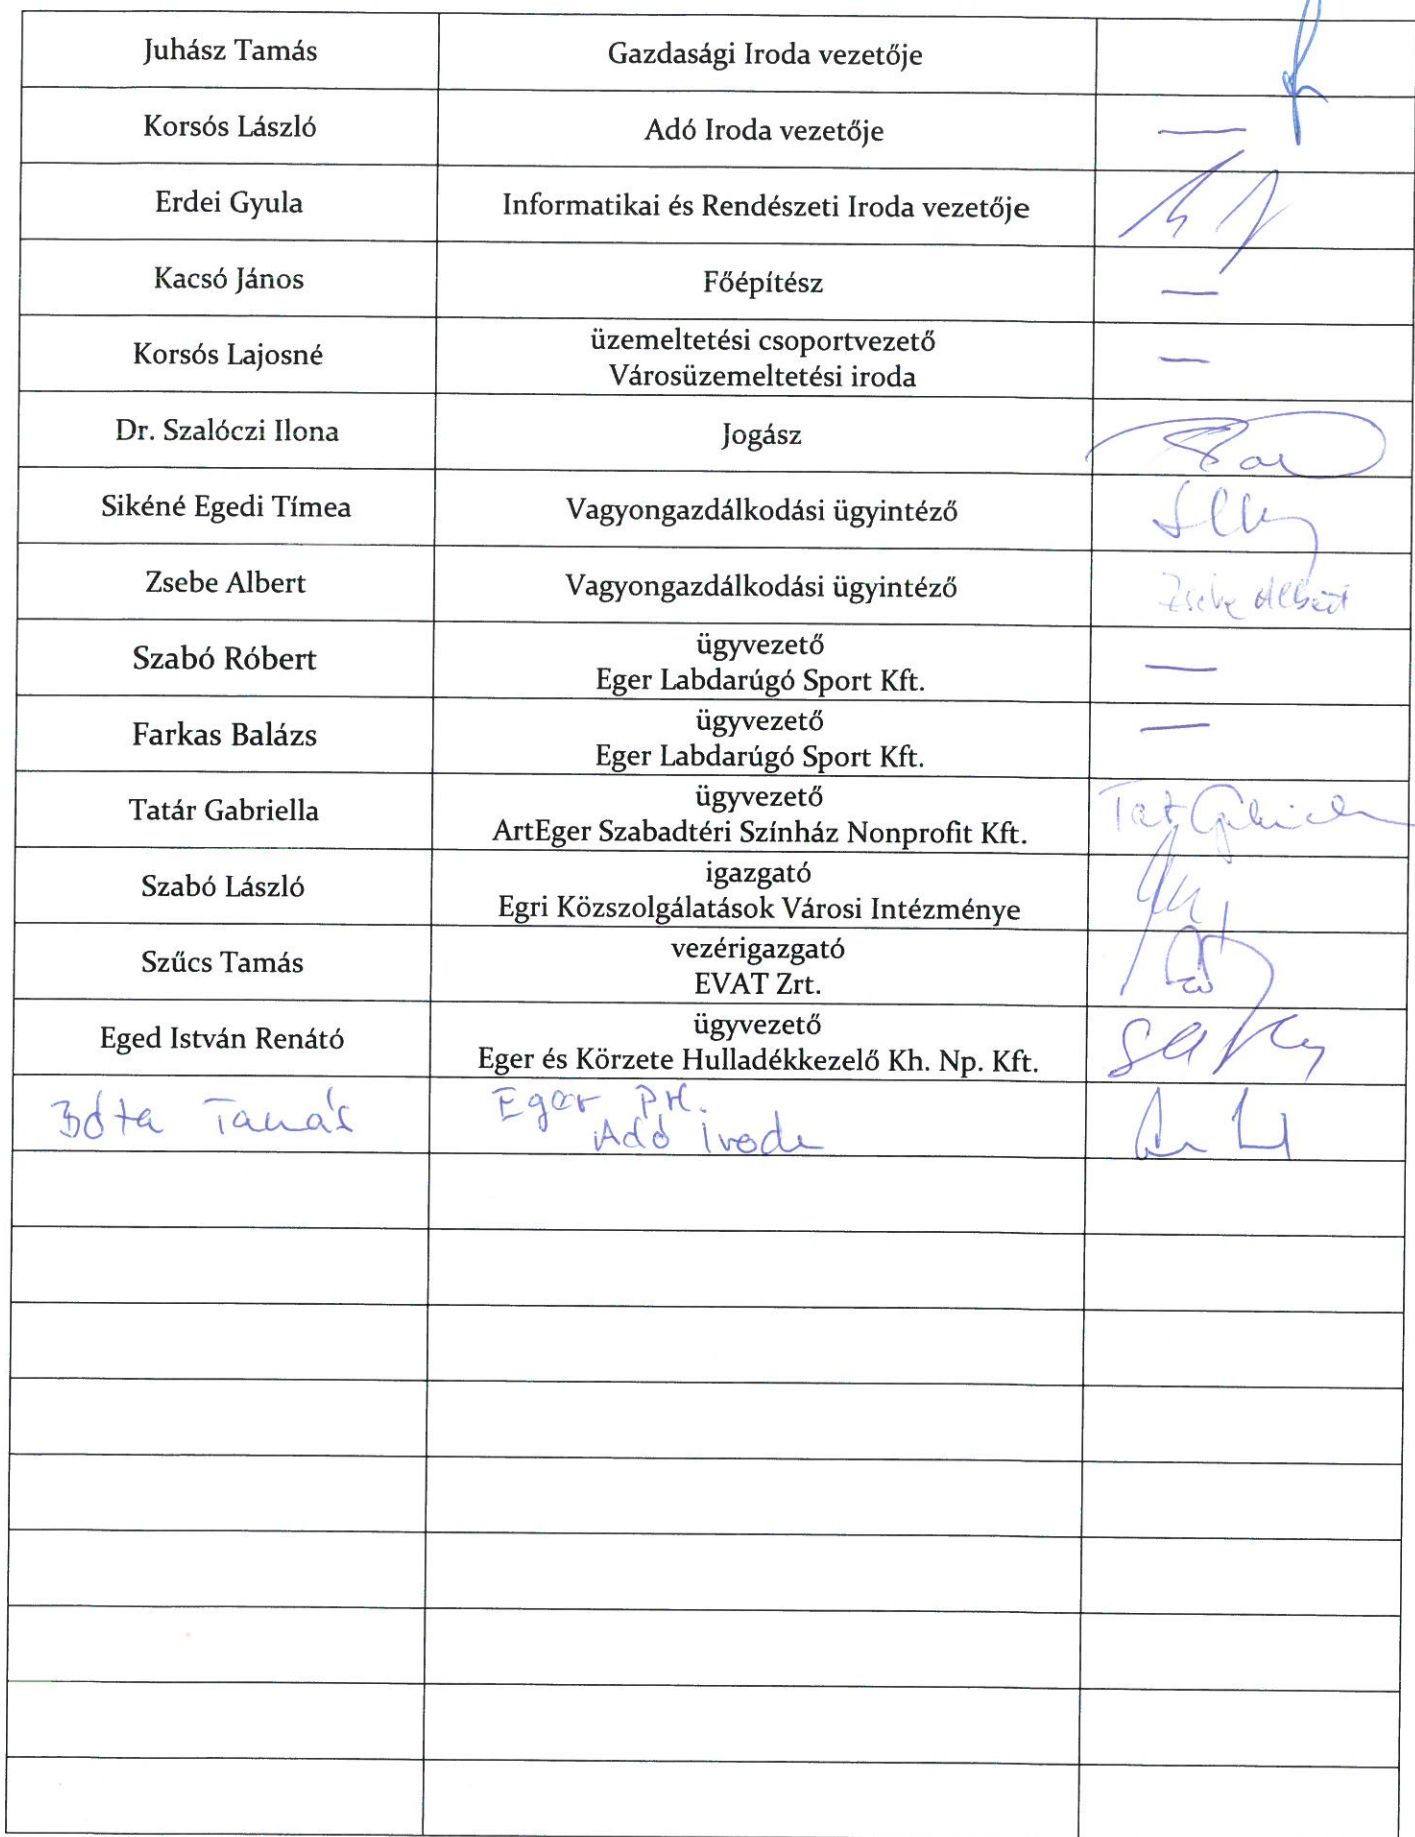 Juhász Tamás Gazdasági Iroda vezetője
Korsós László Adó Iroda vezetője —
Erdei Gyula Informatikai és Rendészeti Iroda vezetője
Kacsó János Főépítész —
Korsós Lajosné üzemeltetési csoportvezető —
Városüzemeltetési iroda
Dr. Szalóczi Ilona Jogász
Sikéné Egedi Tímea Vagyongazdálkodási ügyintéző
Zsebe Albert Vagyongazdálkodási ügyintéző Zsebe Albert
Szabó Róbert ügyvezető —
Eger Labdarúgó Sport Kft.
Farkas Balázs ügyvezető —
Eger Labdarúgó Sport Kft.
Tatár Gabriella ügyvezető
ArtEger Szabadtéri Színház Nonprofit Kft.
Szabó László igazgató
Egri Közszolgálatások Városi Intézménye
Szűcs Tamás vezérigazgató
EVAT Zrt.
Eged István Renátó ügyvezető
Eger és Körzete Hulladékkezelő Kh. Np. Kft.
Bóta Tamás Eger PH.
Adó Iroda